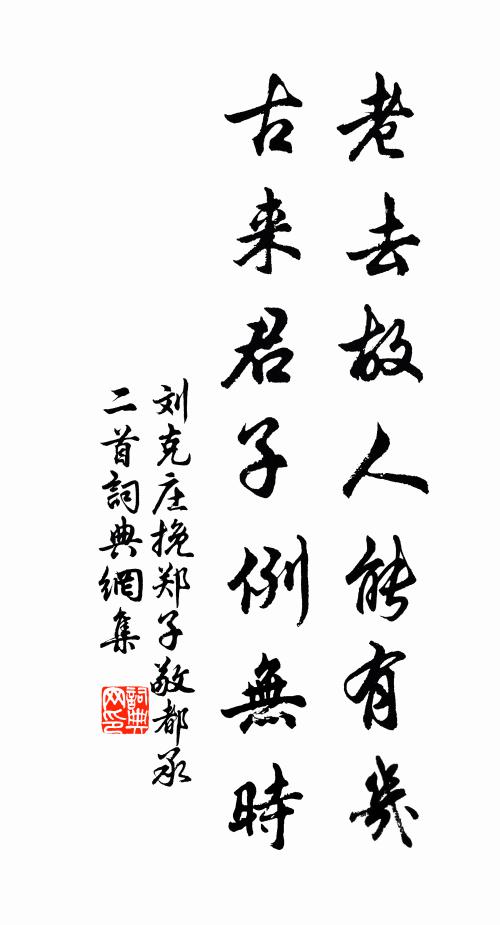 老去故人能有幾
古来君子例無時
刘克庄挽郑子敬都承
二首詞典網集
詞典网印